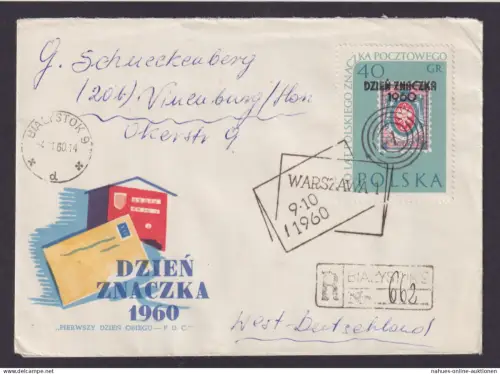 G. Schneckenberg
(20b) Vienenburg/Han
Okerstr 9
BIAŁYSTOK 9
60.14
d
KA POCZTOWEGO
40 GR
DZIEŃ ZNACZKA
1960
POLSKA
WARSZAWA 1
9·10
1960
DZIEŃ
ZNACZKA
1960
„PIERWSZY DZIEŃ OBIEGU — F. D. C."
R
BIAŁYSTOK 9
Nr 662
West-Deutschland
www.nahues-online.de
nahues-online-auktionen